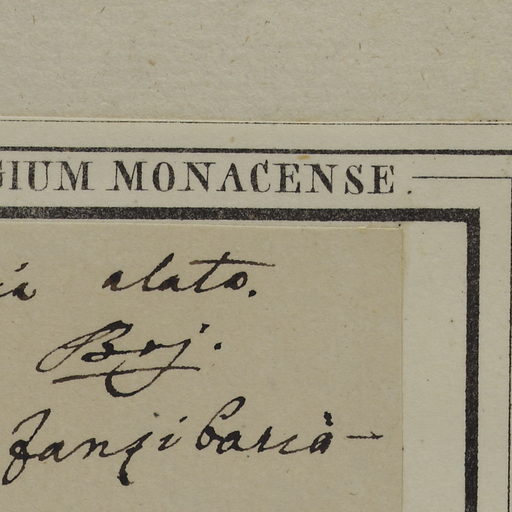 GIUM MONACENSE.
ia alato.
Boj.
Zanzibariâ —